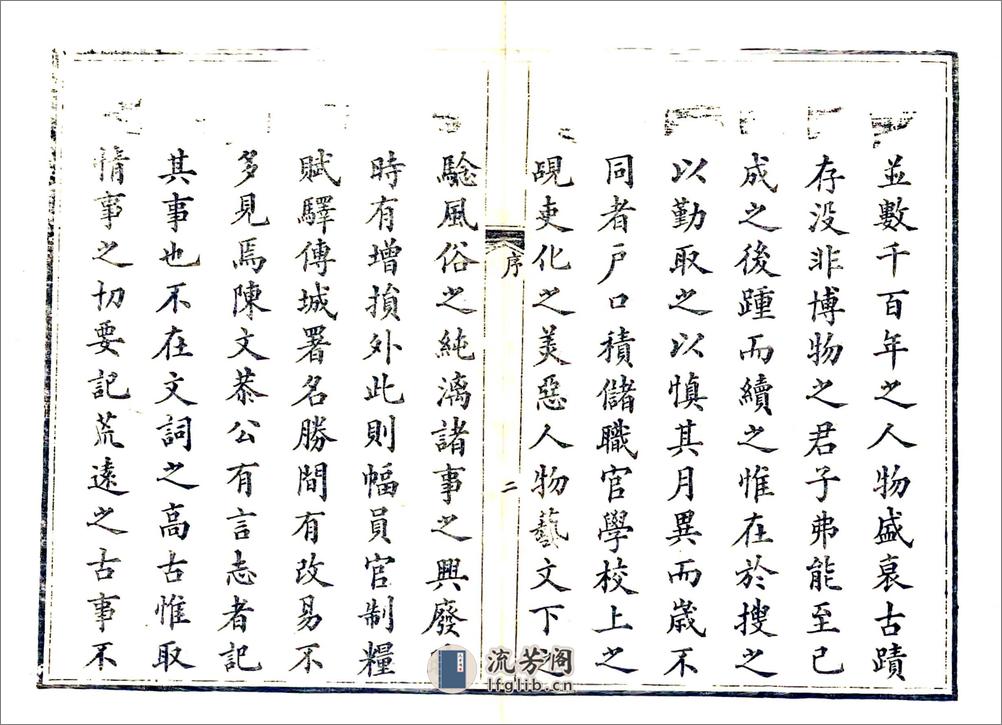 並數千百年之人物盛衰古蹟
存没非博物之君子弗能至已
成之後踵而續之惟在於搜之
以勤取之以慎其月異而歲不
同者戶口積儲職官學校上之
覘吏化之美惡人物藝文下之
序
二
驗風俗之純漓諸事之興廢
時有增損外此則幅員官制糧
賦驛傳城署名勝間有改易不
多見焉陳文恭公有言志者記
其事也不在文詞之高古惟取
情事之切要記荒遠之古事不
流芳阁
lfglib.cn